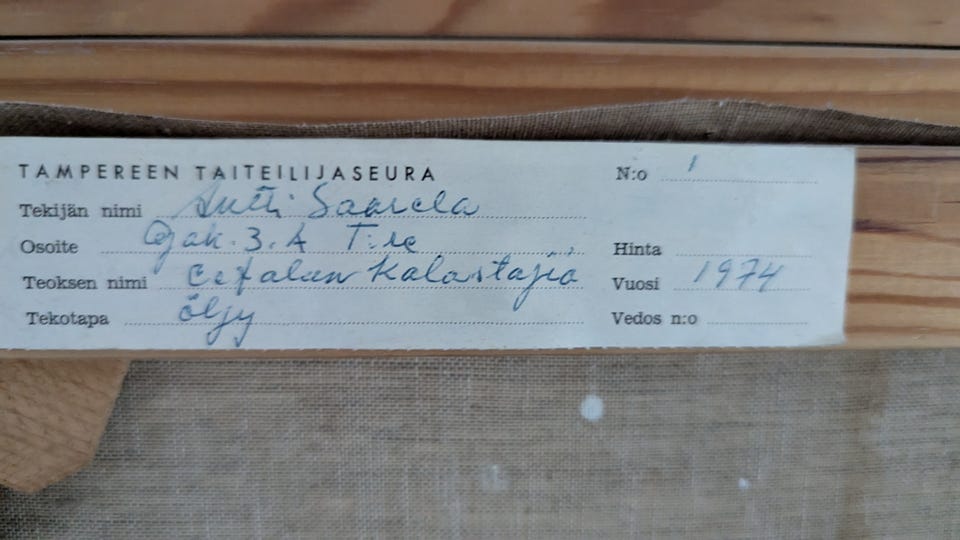 TAMPEREEN TAITEILIJASEURA N:o 1
Tekijän nimi Antti Saarela
Osoite Ojak. 3. A T:re Hinta
Teoksen nimi Cefalun Kalastajia Vuosi 1974
Tekotapa öljy Vedos n:o